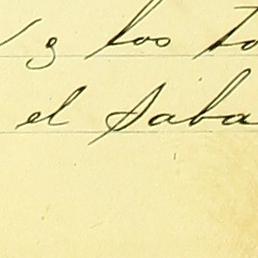 y los to
el Saba